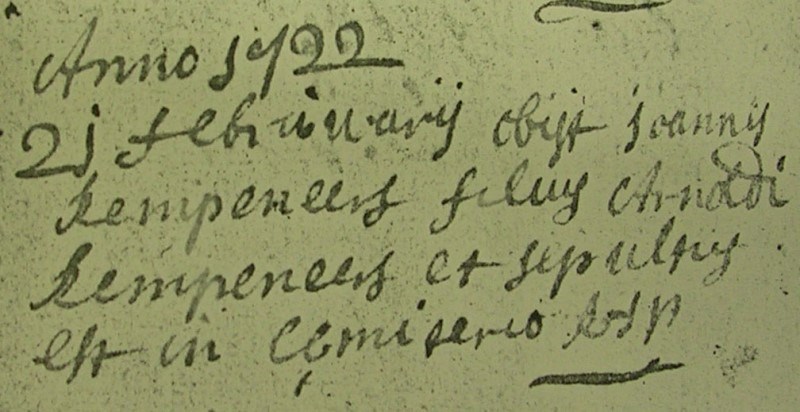 Anno 1722
21 februuarij obijt joannis
kempeneers filius Arnoldi
kempeneers et sepultus
est in Cemiterio